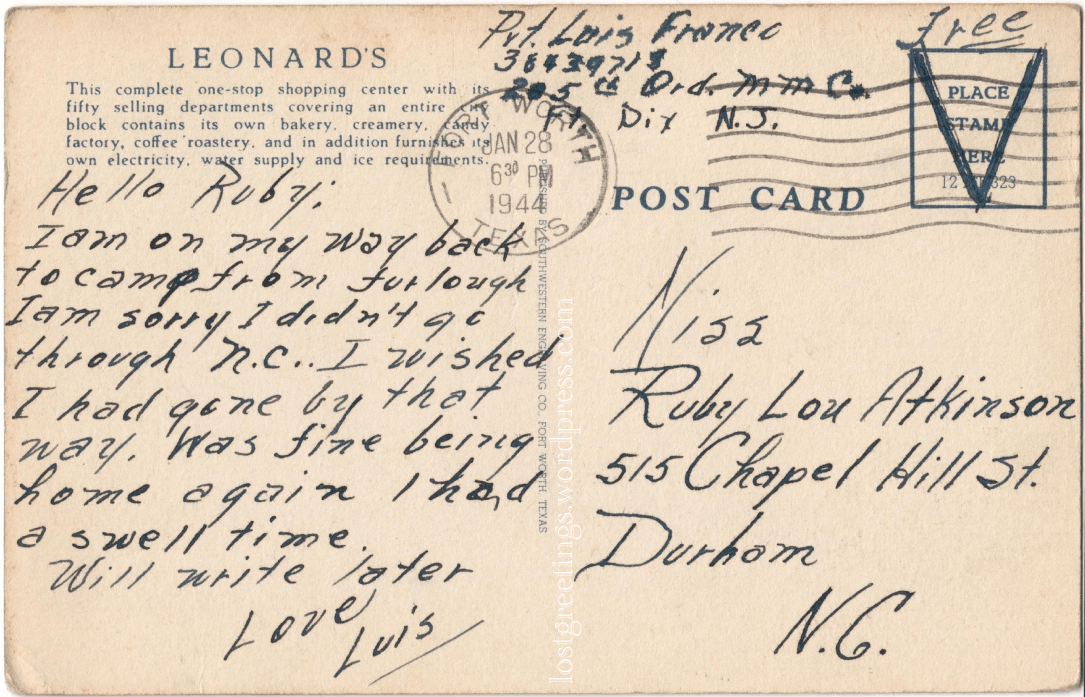 LEONARD'S
This complete one-stop shopping center with its
fifty selling departments covering an entire city
block contains its own bakery, creamery, candy
factory, coffee roastery, and in addition furnishes its
own electricity, water supply and ice requirements.
Hello Ruby:
I am on my way back
to camp from furlough
I am sorry I didn't go
through N.C.. I wished
I had gone by that
way. Was fine being
home again I had
a swell time.
Will write later
Love
Luis
Pvt. Luis Franco
Ord. M M Co.
Ft. Dix N.J.
Free
FORT WORTH
JAN 28
6 30 PM
1944
TEXAS
PLACE
STAMP
HERE
POST CARD
PUBLISHED BY SOUTHWESTERN ENGRAVING CO., FORT WORTH, TEXAS
lostgreetings.wordpress.com
Miss
Ruby Lou Atkinson
515 Chapel Hill St.
Durham
N.C.